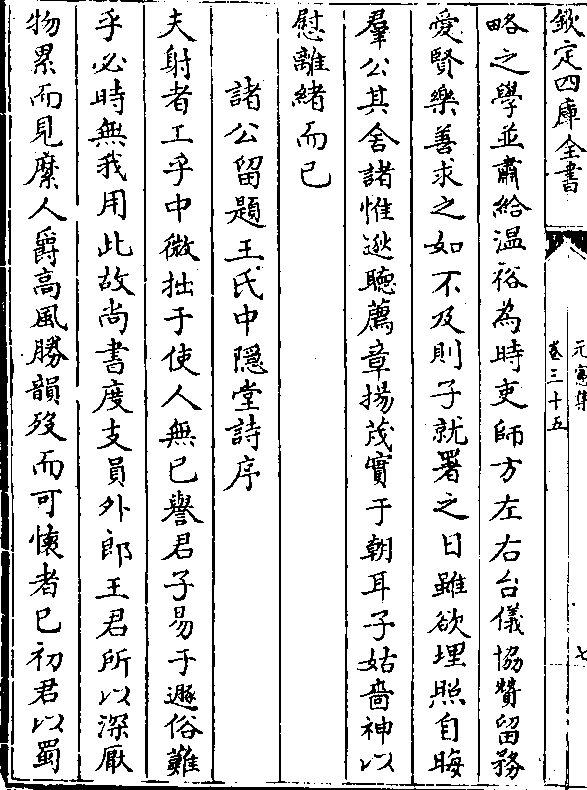 欽定四庫全書
元憲集
卷三十五
七
略之學並肅給溫裕為時吏師方左右台儀協贊留務
愛賢樂善求之如不及則子就署之日雖欲埋照自晦
羣公其舍諸惟逖聽薦章揚茂實于朝耳子姑嗇神以
慰離緒而已
諸公留題王氏中隱堂詩序
夫射者工乎中微拙于使人無已譽君子易于遯俗難
乎必時無我用此故尚書度支員外郎王君所以深厭
物累而見縻人爵高風勝韻歿而可懷者已初君以蜀